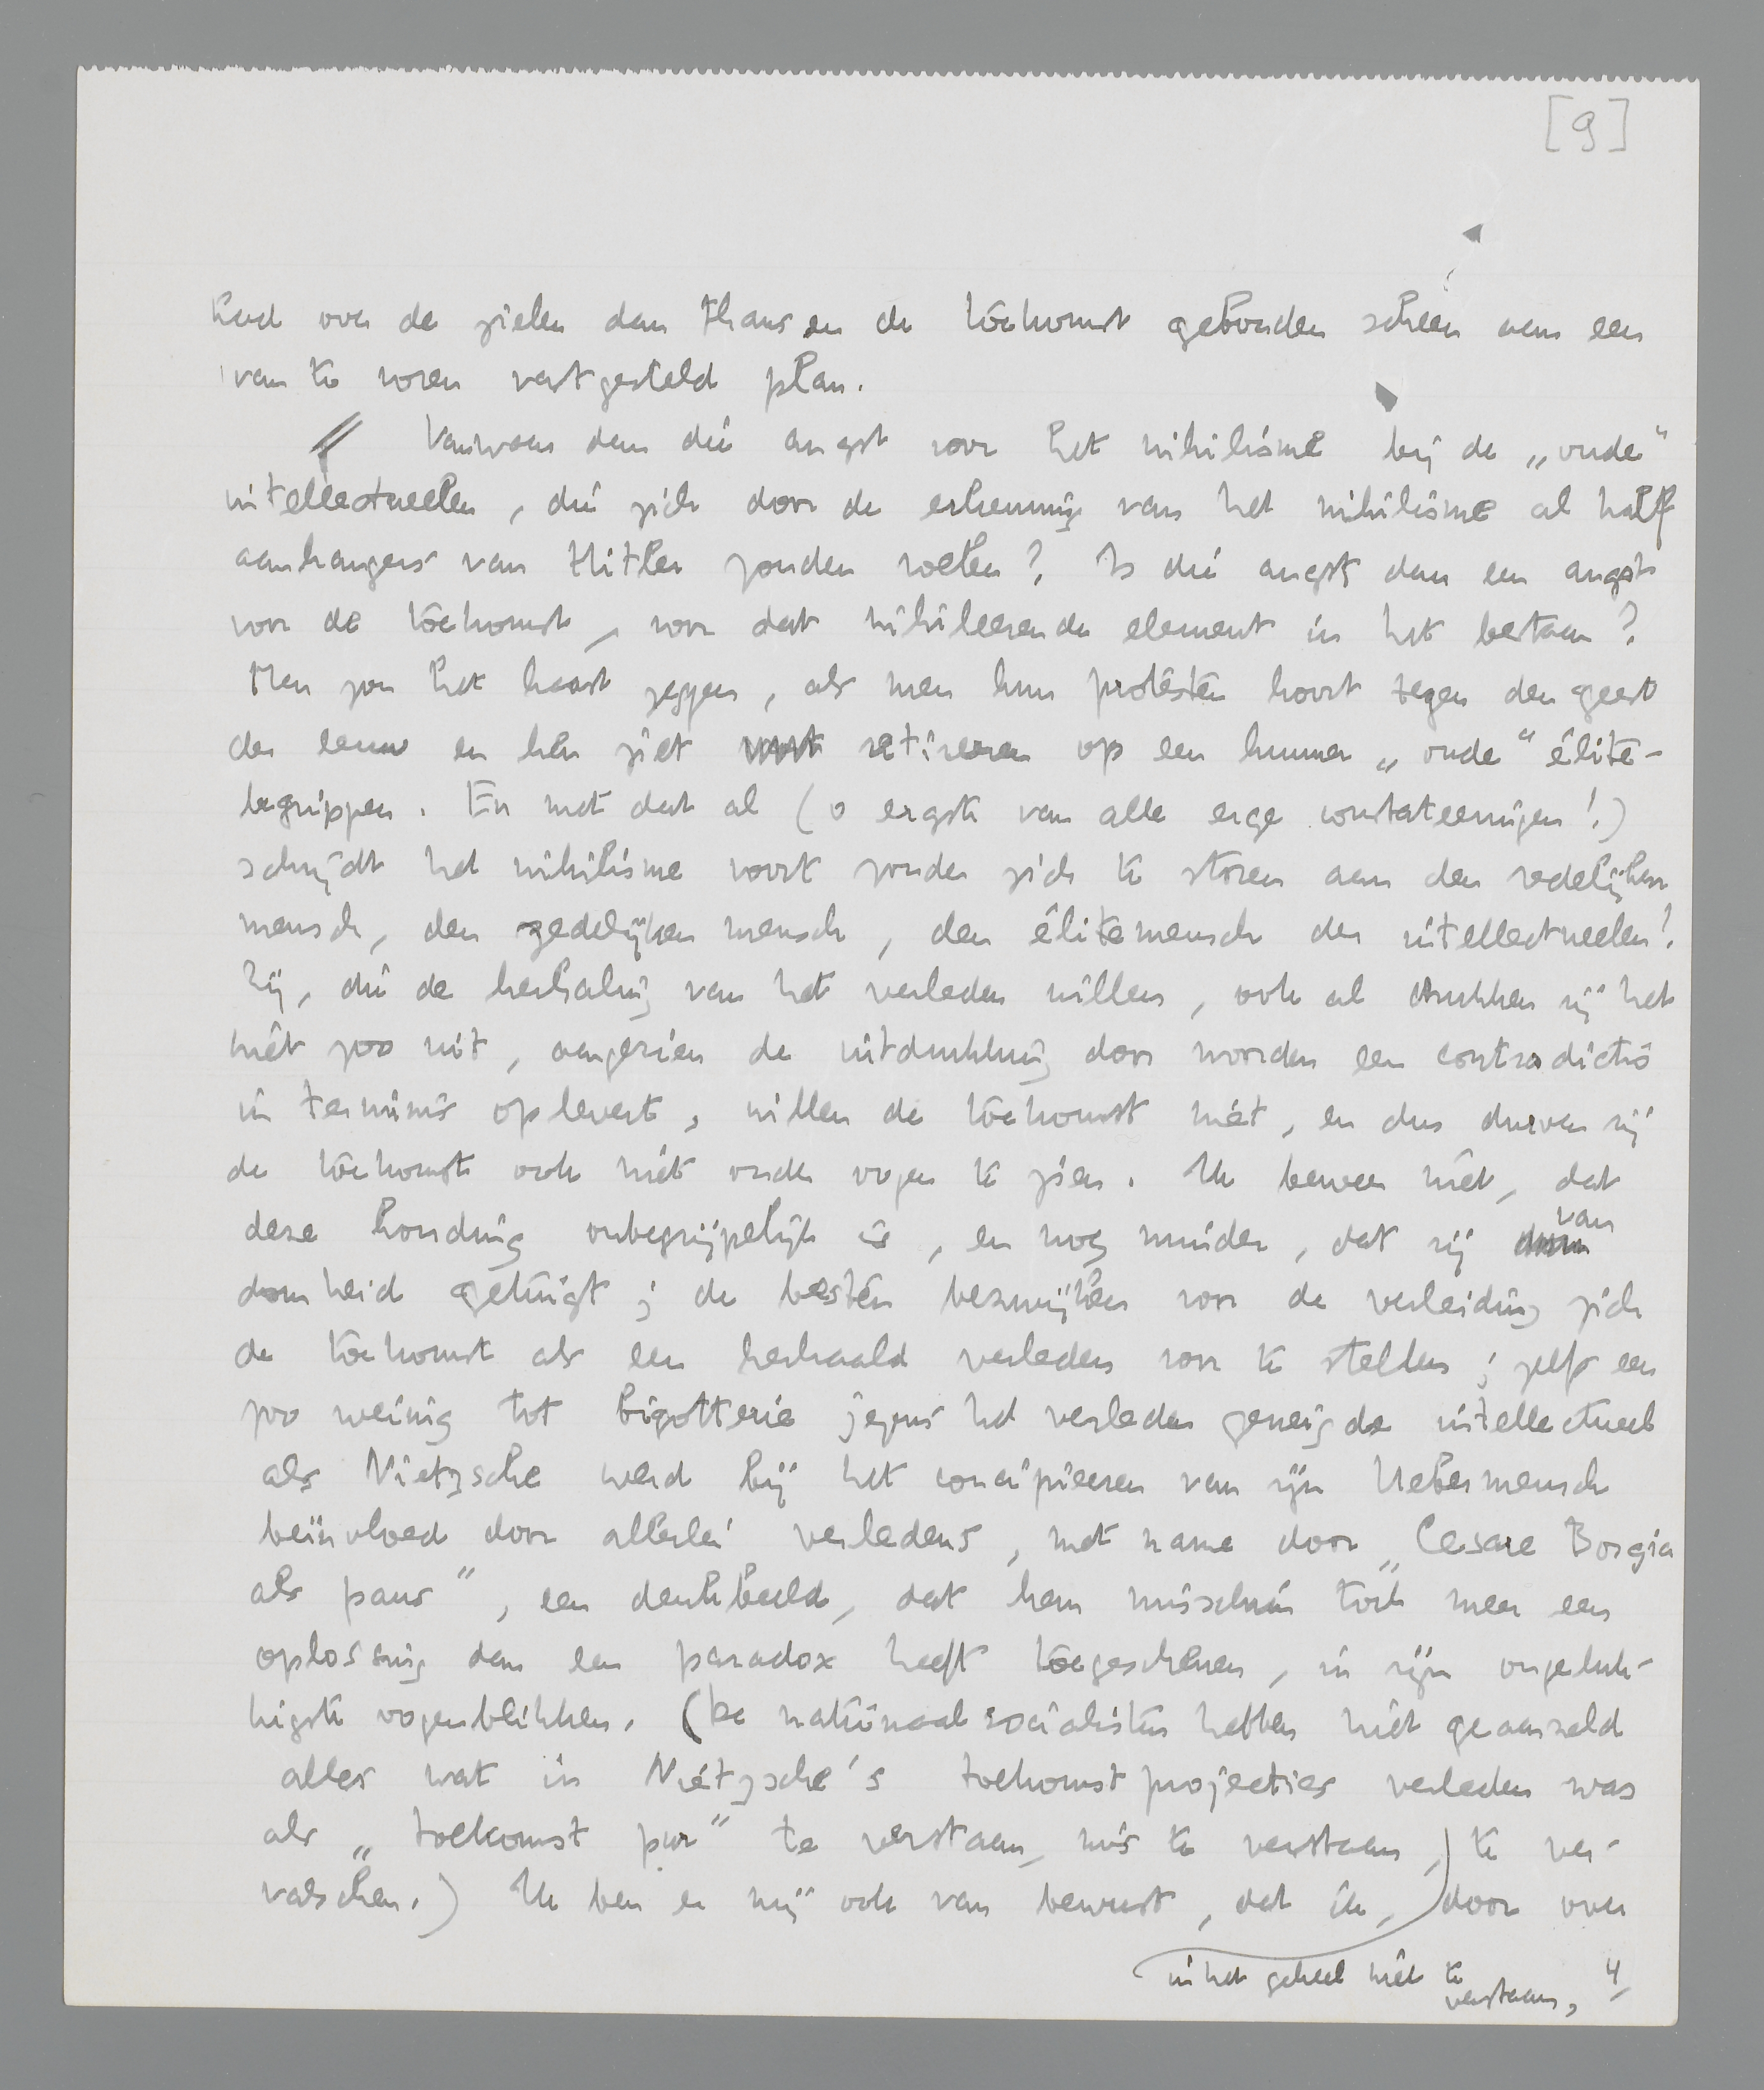 [9]
had over de zielen dan thans en de toekomst gebonden scheen aan een
van te voren vastgesteld plan.
Vanwaar dan die angst voor het nihilisme bij de „oude”
intellectueelen, die zich door de erkenning van het nihilisme al half
aanhangers van Hitler zouden voelen? Is die angst dan een angst
voor de toekomst, voor dat nihileerende element in het bestaan?
Men zou het haast zeggen, als men hun protesten hoort tegen den geest
der eeuw en hen ziet retireeren op een hunner „oude” élite-
begrippen. En met dat al (o ergste van alle erge constateeringen!)
schrijdt het nihilisme voort zonder zich te storen aan den redelijken
mensch, den zedelijken mensch, den élitemensch der intellectueelen!
Zij, die de herhaling van het verleden willen, ook al drukken zij het
niet zoo uit, aangezien de uitdrukking door woorden een contradictio
in terminis oplevert, willen de toekomst niet, en dus durven zij
de toekomst ook niet onder oogen te zien. Ik beweer niet, dat
deze houding onbegrijpelijk is, en nog minder, dat zij van
domheid getuigt; de besten bezwijken voor de verleiding zich
de toekomst als een herhaald verleden voor te stellen; zelfs een
zoo weinig tot bigotterie jegens het verleden geneigde intellectueel
als Nietzsche werd bij het concipieeren van zijn Uebermensch
beïnvloed door allerlei verledens, met name door „Cesare Borgia
als paus”, een denkbeeld, dat hem misschien toch meer een
oplossing dan een paradox heeft toegeschenen, in zijn ongeluk-
kigste oogenblikken. (De nationaalsocialisten hebben niet geaarzeld
alles wat in Nietzsche's toekomstprojecties verleden was
als „toekomst pur” te verstaan, mis te verstaan, te ver-
valschen.) Ik ben er mij ook van bewust, dat ik, door over
in het geheel niet te
verstaan,
4/